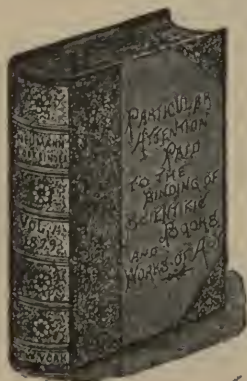 VOL.
1879
PARTICULAR
ATTENTION
PAID
TO THE
BINDING OF
SCIENTIFIC
BOOKS
AND
WORKS OF ART